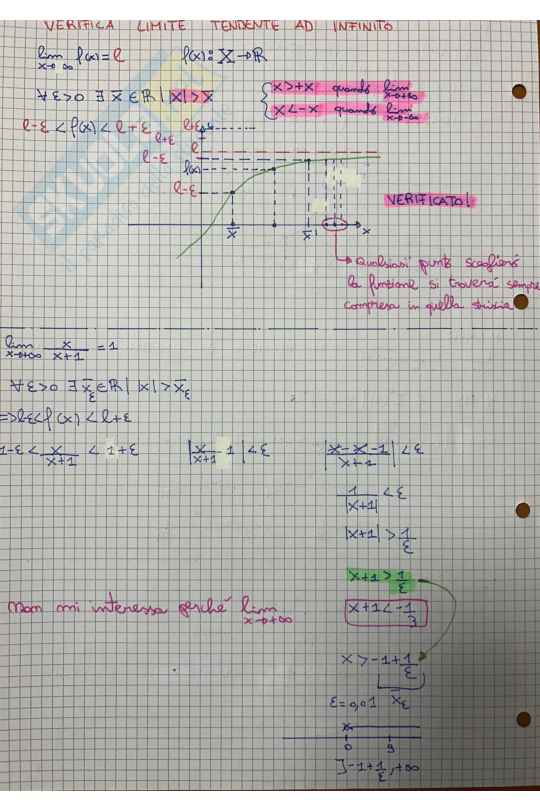 VERIFICA LIMITE TENDENTE AD INFINITO
lim f(x) = l f(x): X → ℝ
x→∞
∀ε>0 ∃ x̄ ∈ ℝ | |x| > x̄
{ x > +x quando lim x→+∞
x < -x quando lim x→-∞
l-ε < f(x) < l+ε
l+ε
l+ε
l
l-ε
f(x)
l-ε
x̄ x̄' x
VERIFICATO!
Qualsiasi punto sceglierò
la funzione si troverà sempre
compresa in quella striscia
lim x/(x+1) = 1
x→+∞
∀ε>0 ∃ x̄ε ∈ ℝ | |x| > x̄ε
=> l-ε < f(x) < l+ε
1-ε < x/(x+1) < 1+ε |x/(x+1) 1| < ε |(x-x-1)/(x+1)| < ε
1/|x+1| < ε
|x+1| > 1/ε
x+1 > 1/ε
Non mi interessa perché lim x→+∞
x+1 < -1/ε
x > -1 + 1/ε
ε=0,01 x̄ε
0 9
]-1+1/ε, +∞